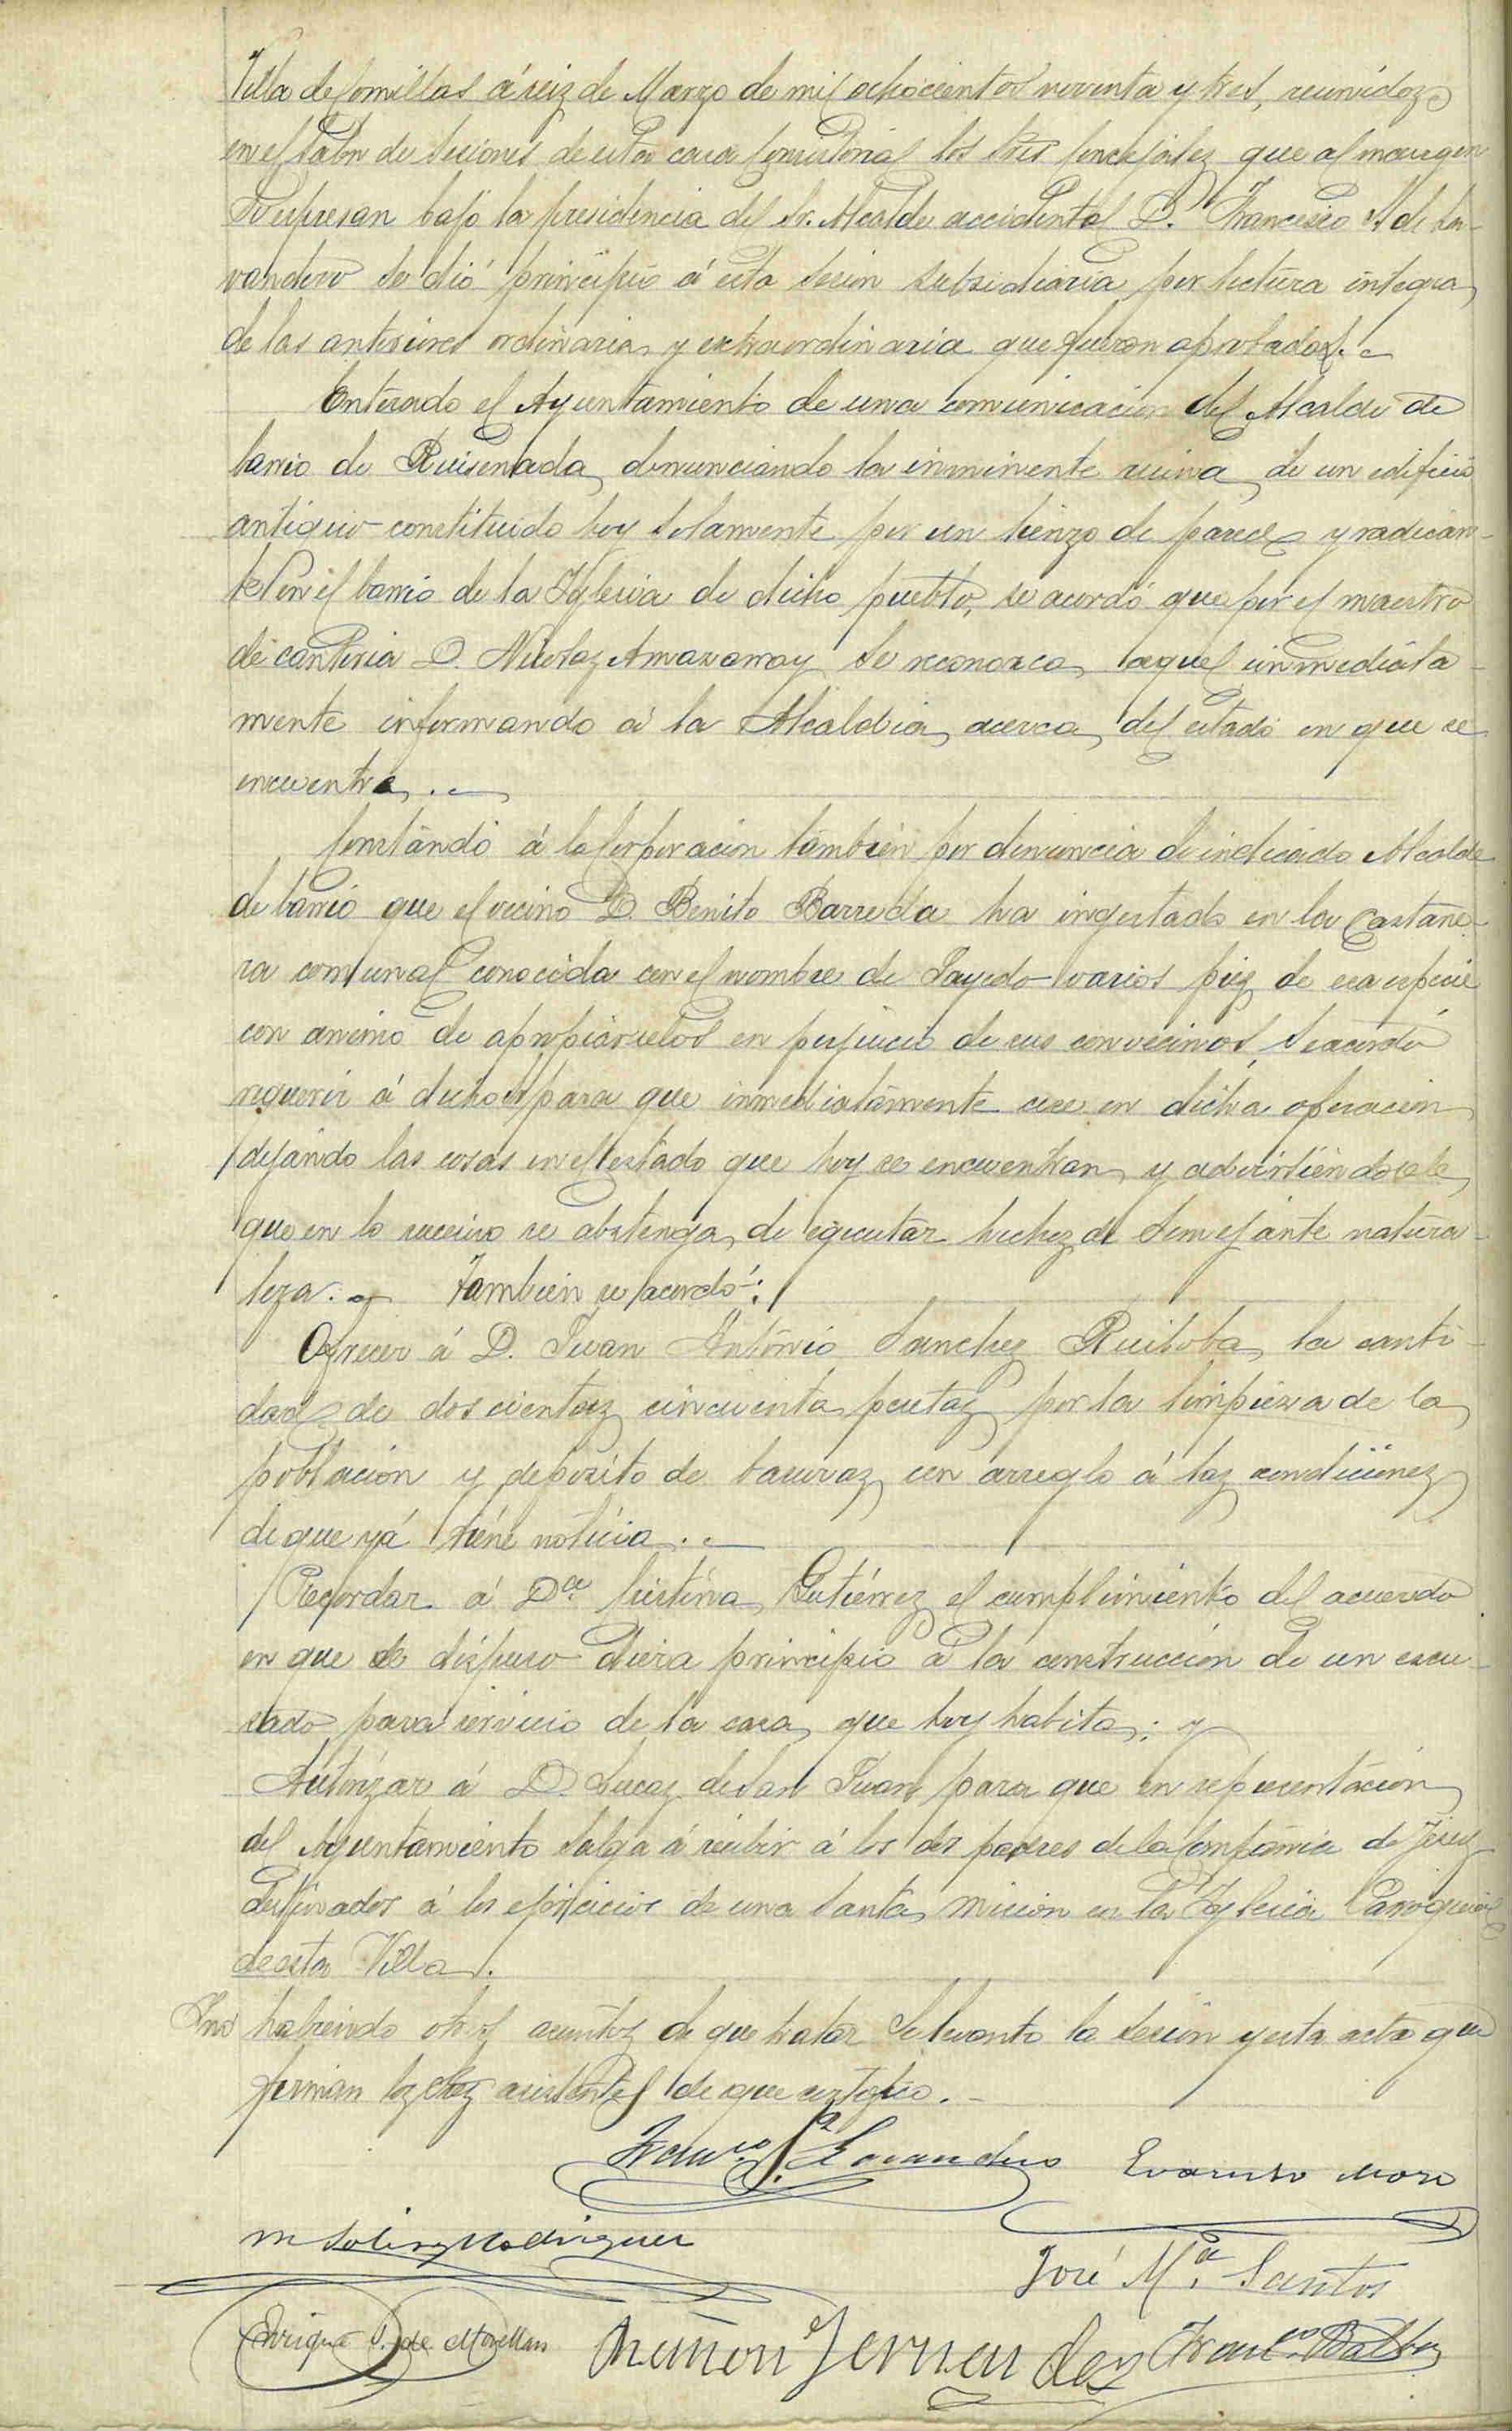 Villa de Comillas á seiz de Marzo de mil ochocientos noventa y tres, reunidoz
en el salon de sesiones de esta casa Consistorial los Sres Concejalez que al margen
se expresan bajo la presidencia del Sr. Alcalde accidental D. Francisco S. de La-
vandero se dió principio á esta sesion subsidiaria por lectura integra
de las anteriores ordinaria y extraordinaria que fueron aprobadas.
Enterado el Ayuntamiento de una comunicacion del Alcalde de
barrio de Ruiseñada denunciando la inminente ruina de un edificio
antiguo constituido hoy solamente por un lienzo de pared y radican-
te en el barrio de la Yglesia de dicho pueblo, se acordó que por el maestro
de canteria D. Nicolaz se reconozca aquel inmediata-
mente informando á la Alcaldia acerca del estado en que se
encuentra.
Constando á la Corporacion tambien por denuncia de indicado Alcalde
de barrio que el vecino D. Benito Barreda ha ingertado en la Castañe-
ra comunal conocida con el nombre de varios piez de esa especie
con animo de apropiarselos en perjuicio de sus convecinos, se acordó
requerir á dicho Sr para que inmediatamente cese en dicha operacion
dejando las cosas en el estado que hoy se encuentran y advirtiendosele
que en lo sucesivo se abstenga de egecutar hechoz de semejante natura-
leza. Tambien se acordó:
Ofrecer á D. Juan Antonio Sanchez Ruiloba la canti-
dad de doscientaz cincuenta pesetaz por la limpieza de la
población y deposito de basuraz con arreglo á laz condicionez
de que yá tiene noticia.
Recordar á Dª Cristina Gutiérrez el cumplimiento del acuerdo
en que se dispuso diera principio á la construcción de un escu-
sado para servicio de la casa que hoy habita; y
Autorizar á D. Lucaz de San Juan para que en representacion
del Ayuntamiento salga á recibir á los dos padres de la Compañia de Jesuz
destinados á los ejercicios de una Santa mision en la Yglesia Parroquial
de esta Villa.
Y no habiendo otros asuntoz de que tratar se levanto la sesion y esta acta que
firman loz Srez asistentes de que certifico.
Franco S. de Lavandero Evaristo Mora
M Solis y Rodriguez
José Mª. Santos
Enrique P. de Movellan Ramon Fernandez Franco Balbas